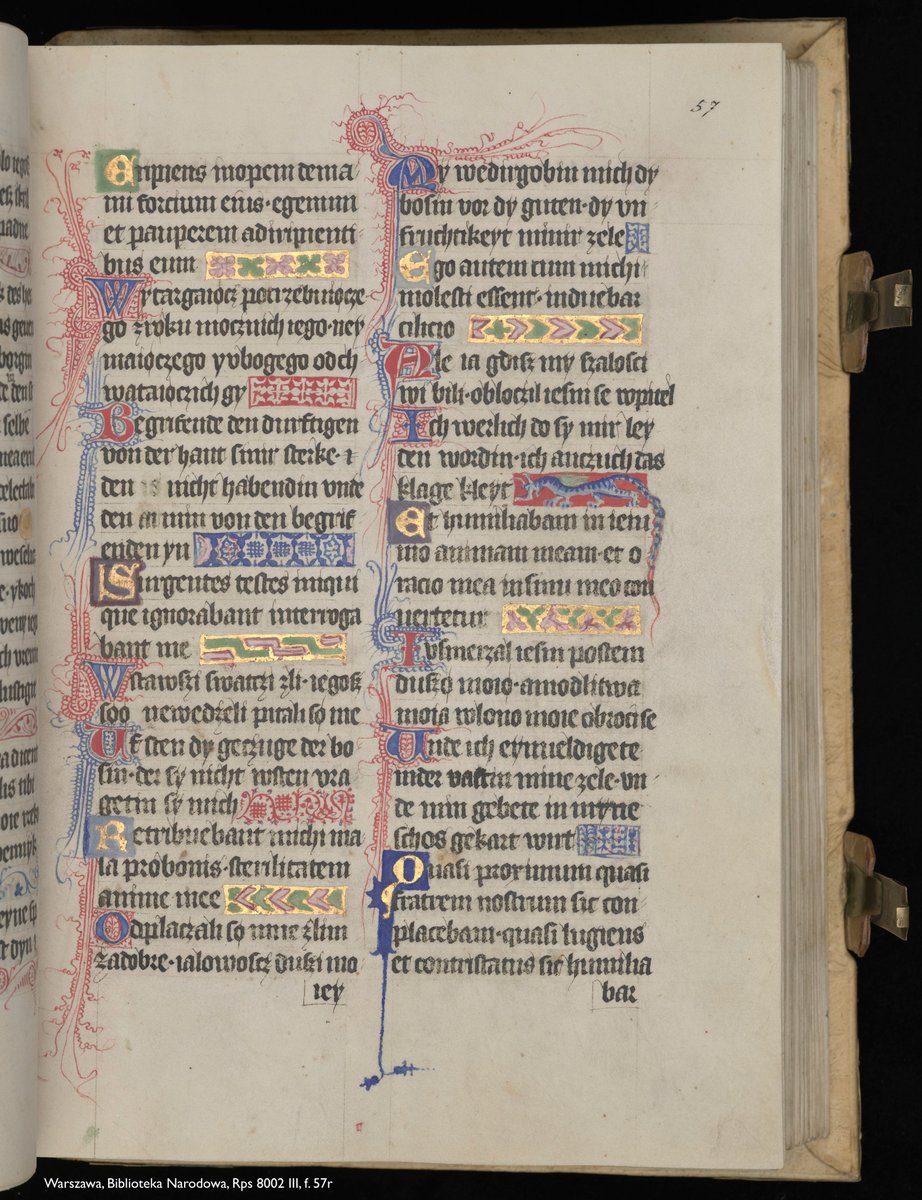 57
Eripiens inopem de ma
nu forcium eius · egenum
et pauperem adiripienti
bus eum
Wytargaiocz potrzebuiocze
go zroku mocznich iego · ney
maioczego yvbogego odch
wataioczich gy
Begrifende den durftigen
von der hant sinir sterke ·
den nicht habendin vnte
den von den begrif
enden yn
Surgentes testes iniqui
que ignorabant interroga
bant me
Wstawszi swatczi zli · iegosz
soo newedzeli pitali so me
Uf sten dy getzuge der bo
sin · der sy nicht wsten vra
getin sy mich
Retribuebant michi ma
la probonis · sterilitatem
anime mee
Odplaczali so mne zlim
zadobre · ialowoscz duszi mo
iey
My wedirgobin mich dy
bosin vor dy guten · dy vn
fruchtikeyt minir zele
Ego autem cum michi
molesti essent · induebar
cilicio
Ale ia gdisz my szalosci
wi bili · obloczil iesm se wpitel
Ich werlich do sy mir ley
den wordin · ich anczuch das
klage kleyt
Et humiliabam in ieiu
nio animam meam · et o
racio mea insinu meo con
uertetur
Vsmerzal iesm postem
duszo moio · amodlitwa
moia wlono moie obroci se
Unde ich eymueldigete
inder vastin mine zele · vn
de min gebete in myne
schos gekart wirt
Quasi proximum quasi
fratrem nostrum sic con
placebam · quasi lugiens
et contristatus sic humilia
bar
Warszawa, Biblioteka Narodowa, Rps 8002 III, f. 57r